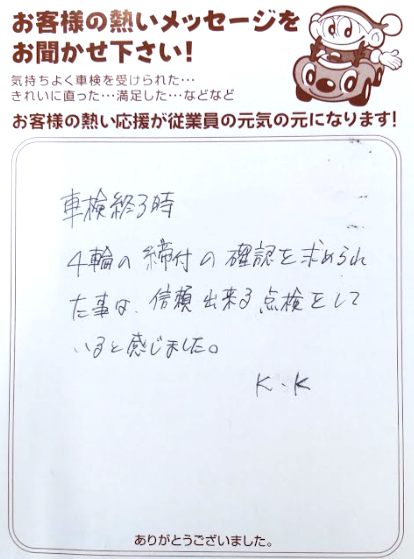 お客様の熱いメッセージを
お聞かせ下さい!
気持ちよく車検を受けられた…
きれいに直った…満足した…などなど
お客様の熱い応援が従業員の元気の元になります!
車検終了時
4輪の締付の確認を求められ
た事は、信頼出来る点検をして
いると感じました。
K.K
ありがとうございました。